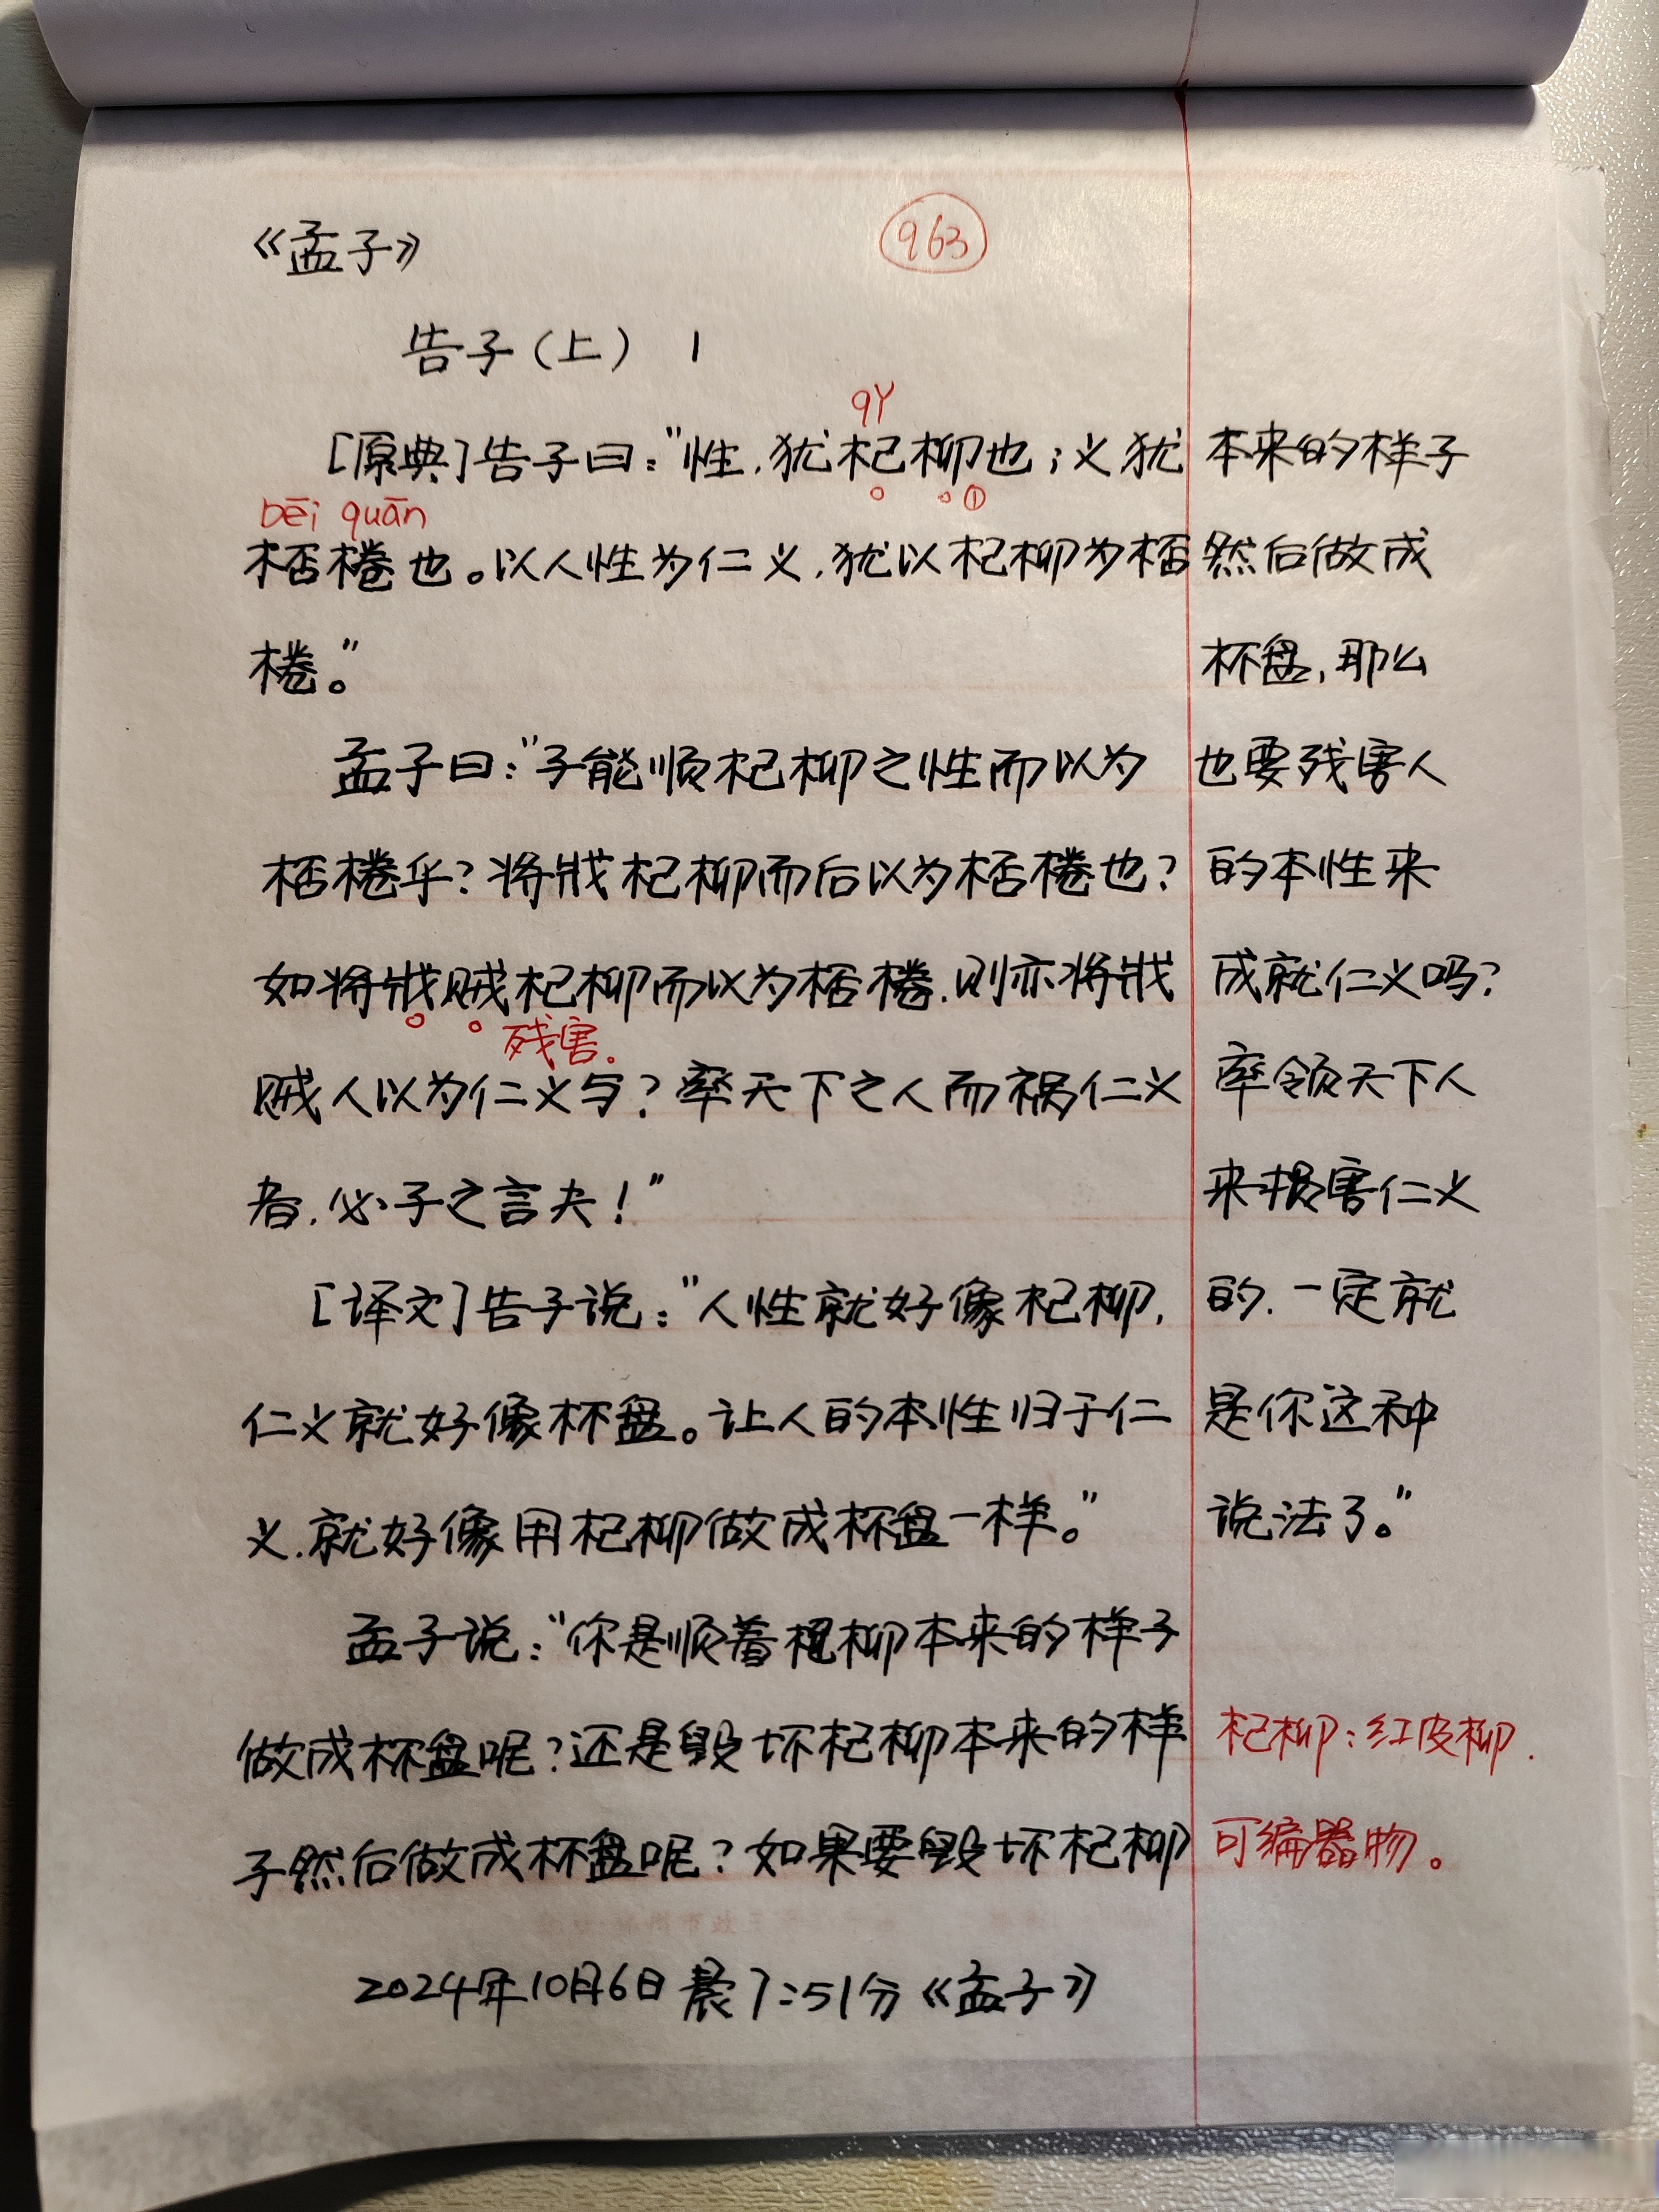 《孟子》
963
告子(上) 1
qǐ
[原典]告子曰:"性,犹杞柳也;义,犹
①
bēi quān
桮棬也。以人性为仁义,犹以杞柳为桮
棬。"
孟子曰:"子能顺杞柳之性而以为
桮棬乎?将戕杞柳而后以为桮棬也?
如将戕贼杞柳而以为桮棬,则亦将戕
残害.
贼人以为仁义与?率天下之人而祸仁义
者,必子之言夫!"
[译文]告子说:"人性就好像杞柳,
仁义就好像杯盘。让人的本性归于仁
义,就好像用杞柳做成杯盘一样。"
孟子说:"你是顺着杞柳本来的样子
做成杯盘呢?还是毁坏杞柳本来的样
子然后做成杯盘呢?如果要毁坏杞柳
本来的样子
然后做成
杯盘,那么
也要残害人
的本性来
成就仁义吗?
率领天下人
来损害仁义
的,一定就
是你这种
说法了。"
杞柳:红皮柳.
可编器物。
2024年10月6日晨7:51分《孟子》